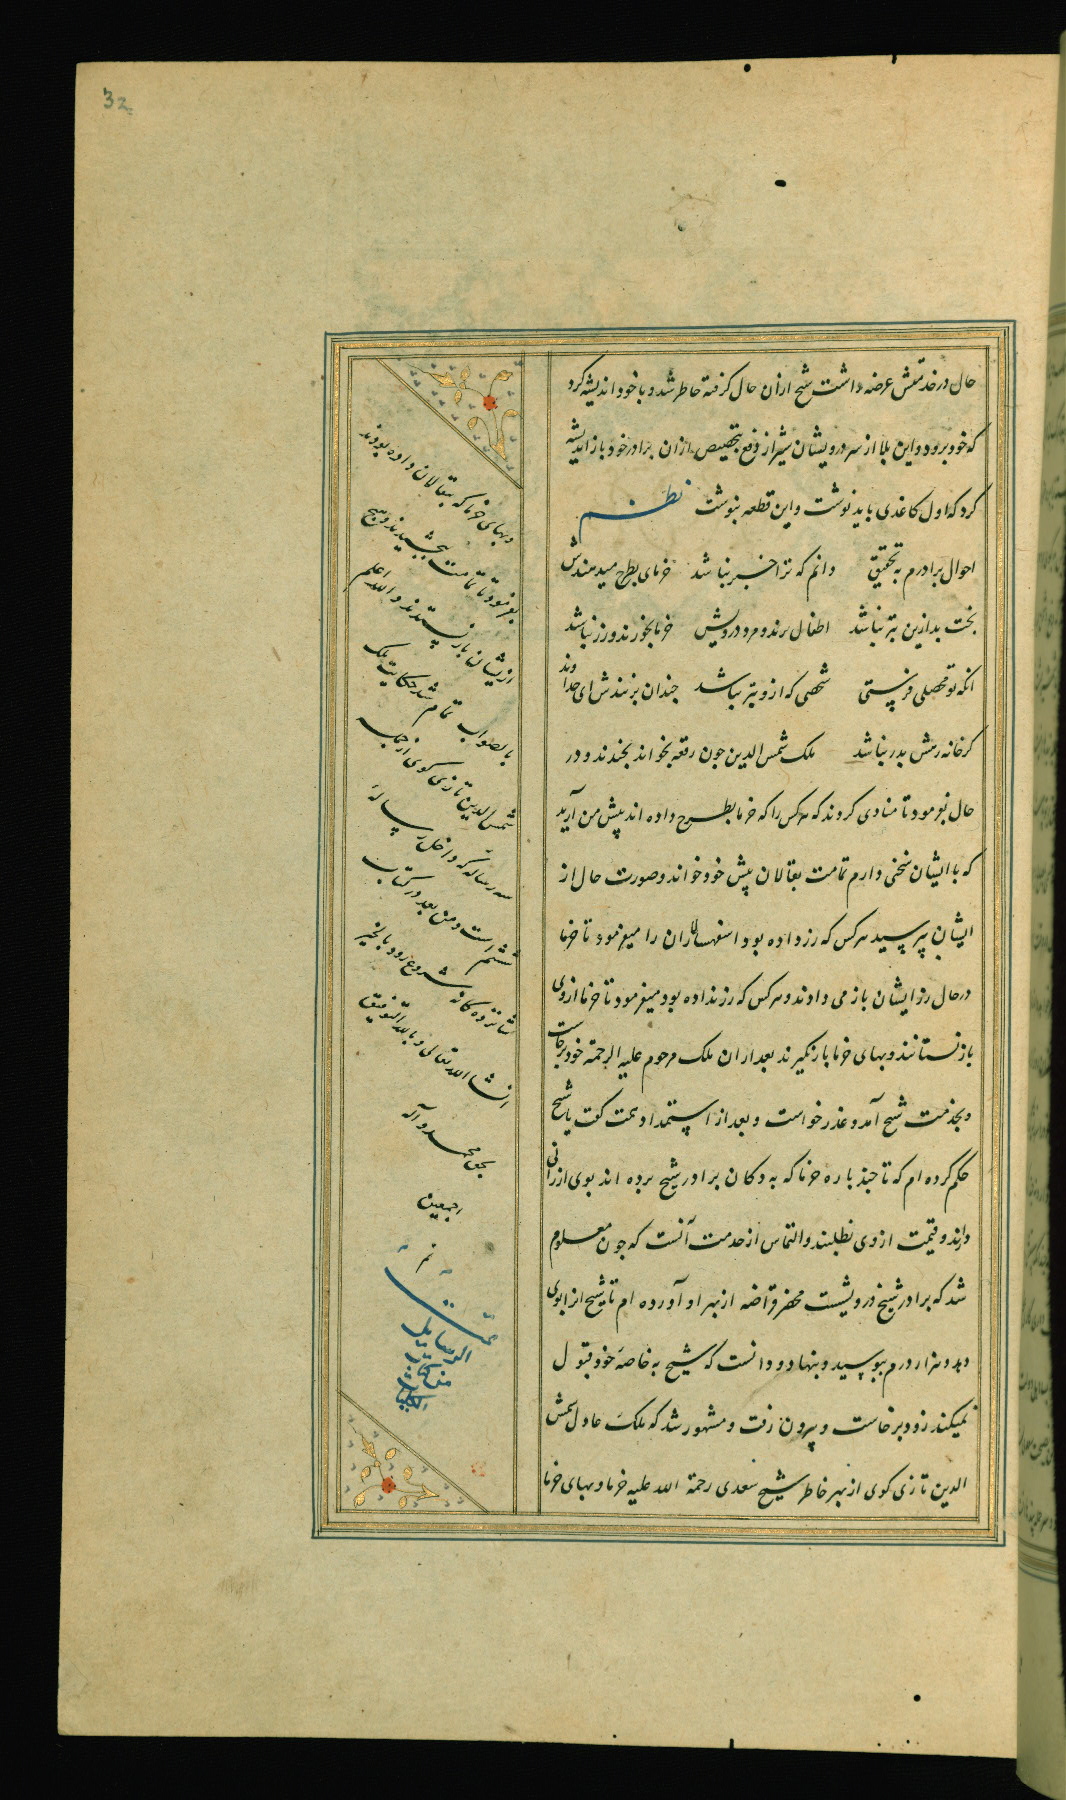 32
حال در خدمتش عرضه داشت شیخ ازان حال کوفته خاطر شد و با خود اندیشه کرد
که خود برود و این بلا از سر درویشان شیراز دفع بتخصیص ازان برادر خود باز اندیشه
کرد که اول کاغذی باید نوشت و این قطعه بنوشت نظم
احوال برادرم به تحقیق دانم که ترا خبر نباشد خرمای بطرح میدهندش
بخت بد ازین بتر نباشد اطفال برند و مرد درویش خرما بخورند و زر نباشد
انکه تو محصلی فرستی شخصی که ازو بتر نباشد چندان بزنندش ای خداوند
کز خانه رهش بدر نباشد ملک شمس الدین چون رقعه بخواند بخندید و در
حال بفرمود تا منادی کردند که هر کس را که خرما بطرح داده اند پیش من آرید
که با ایشان سخنی دارم تمامت بقالان پیش خود خواند و صورت حال از
ایشان بپرسید هر کس که زر داده بود اسفهسالاران را میفرمود تا خرما
در حال زر ایشان باز می دادند و هر کس که زر نداده بود میفرمود تا خرما ازوی
باز نستانند و بهای خرما باز نگیرند بعد ازان ملک مرحوم علیه الرحمة خود برخاست
و بخدمت شیخ آمد و عذر خواست و بعد از استمداد همت گفت یا شیخ
حکم کرده ام که تا چند باره خرما که به دکان برادر شیخ برده اند بوی ارزانی
دارند و قیمت ازوی نطلبند و التماس از خدمت آنست که چون معلوم
شد که برادر شیخ درویشست محقر قراضه از بهر او آورده ام تا شیخ انرا بوی
دهد و هزار درم ببوسید و بنهاد و دانست که شیخ به خاصه خود قبول
نمیکند زود برخاست و بیرون رفت و مشهور شد که ملک عادل شمس
الدین تازی کوی از بهر خاطر شیخ سعدی رحمة الله علیه خرما و بهای خرما
و بهای خرما که بقالان داده بودند
بفرمود تا تمامت ببخشیدند و هیچ
ازیشان باز نستدند و الله اعلم
بالصواب تمام شد حکایت ملک
شمس الدین تازی کوی از جمله
سه رساله که داخل رساله
ششم است و من بعد در کتاب
شانزده کانه شروع رود بالخیر
انشاالله تعالی و بالله التوفیق
بحق محمد و آله
اجمعین
تم
تمت
الرسایل